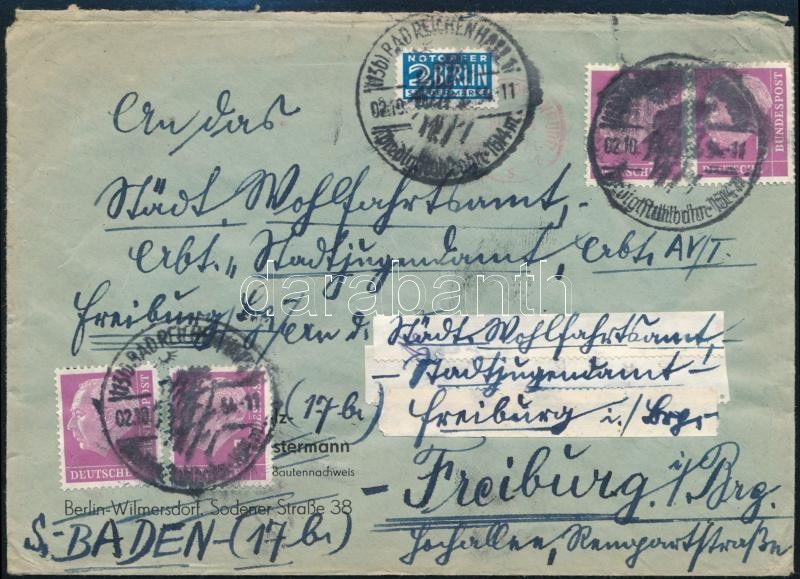 (13b) BAD REICHENHALL 1
NOTOPFER
2 BERLIN
STEUERMARKE
02.10. -11
BUNDESPOST
DEUTSCHE
02.10. -11
An das
Städt. Wohlfahrtsamt,
Abt. „Stadtjugendamt, Abt. AV/T.
Freiburg
Städt. Wohlfahrtsamt,
- Stadtjugendamt -
Freiburg i./Brg.
BUNDESPOST
DEUTSCHE
02.10. -11
(17-b.)
stermann
Bautennachweis
Berlin-Wilmersdorf, Sodener Straße 38
S.-BADEN-(17b.)
- Freiburg i/Brg.
Hochallee, Rempartstraße
darabanth